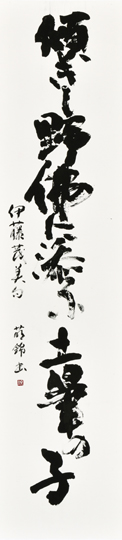 傾きし野佛に添ふ土筆の子
伊藤茂美句 萌錦書